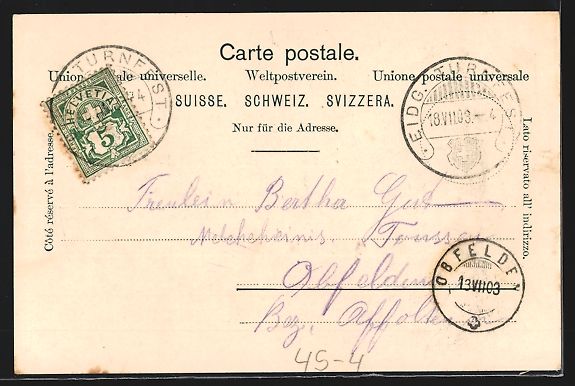 Carte postale.
Union postale universelle. Weltpostverein. Unione postale universale
SUISSE. SCHWEIZ. SVIZZERA.
Nur für die Adresse.
Côté réservé à l'adresse.
Lato riservato all' indirizzo.
TURNFEST
HELVETIA
5
EIDG. TURNFEST
13VII03. – 4
Freulein Bertha Gut
Obfelden
Bez. Affoltern
OBFELDEN
13VII03
45-4